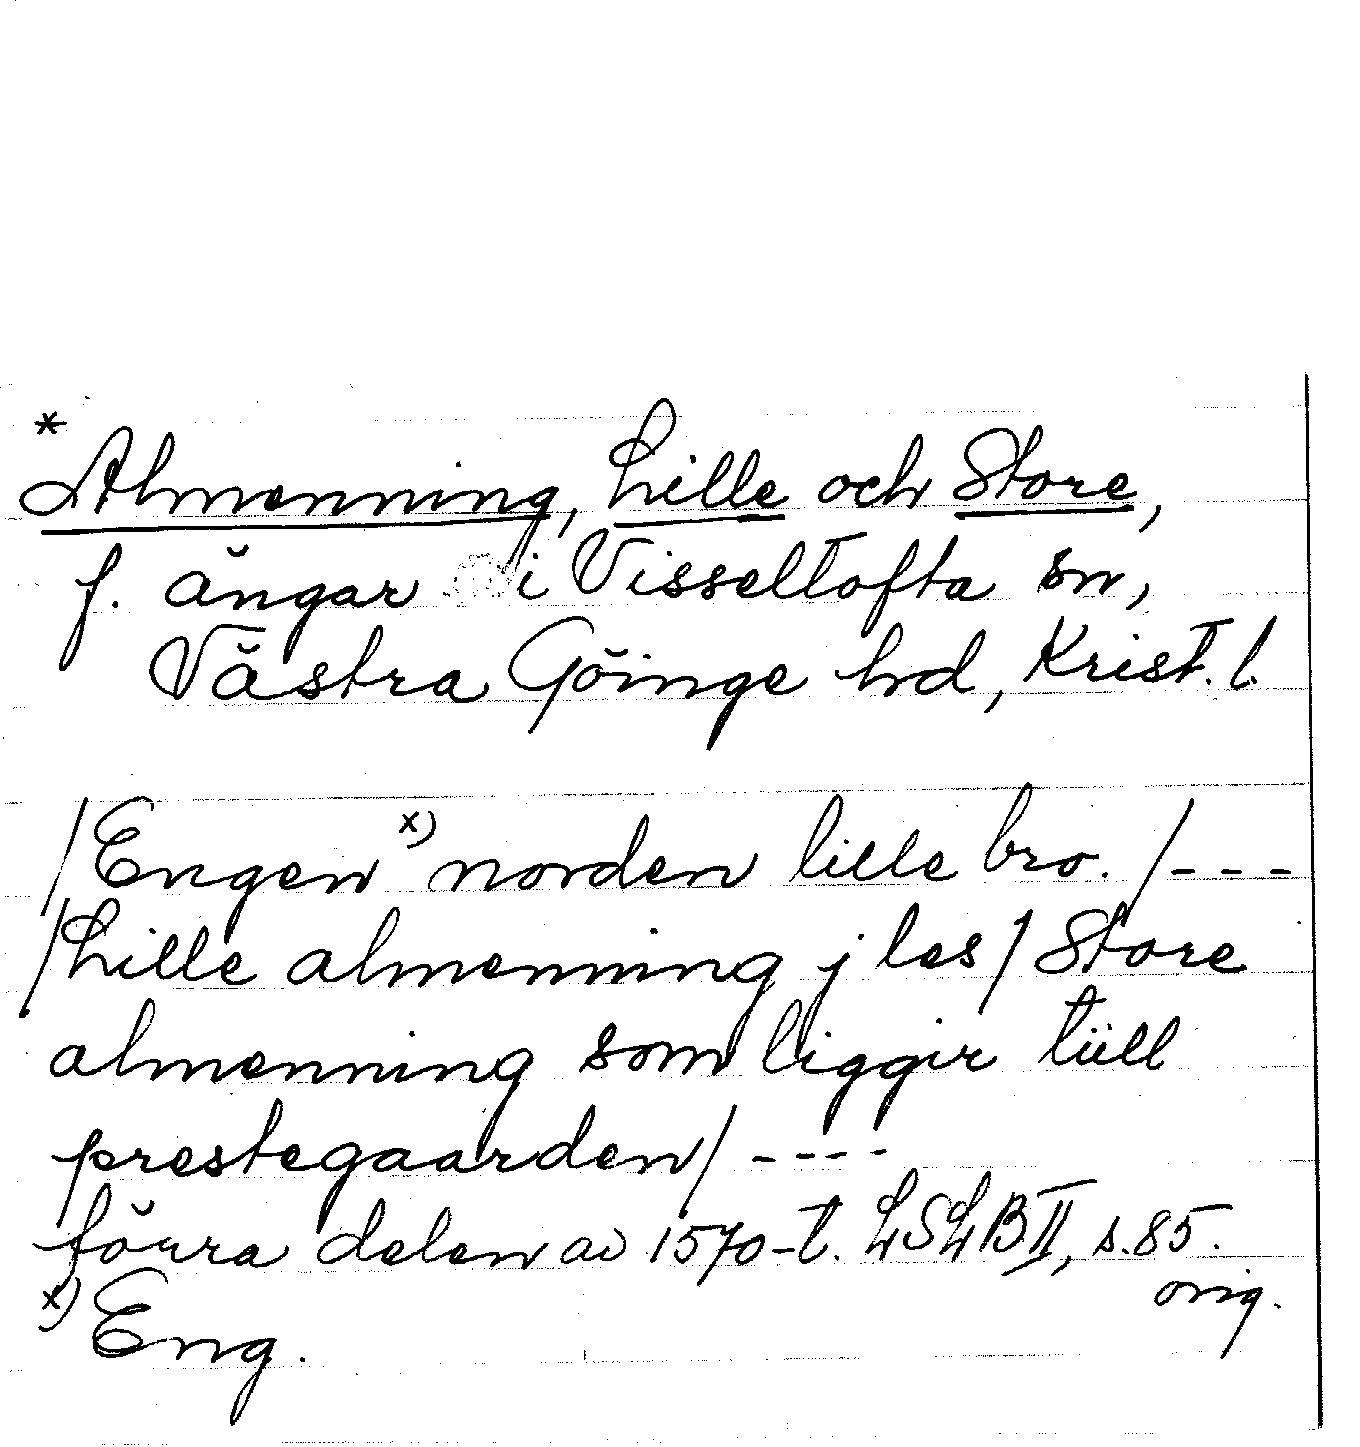 *
Almenning, Lille och Store,
f. ängar i Visseltofta sn,
Västra Göinge hd, Krist. l.
/Engen x) norden lille bro. /---
/Lille almenning j les/ Store
almenning som liggir tüll
prestegaarden/ ----
förra delen av 1570-t. LSLB II, s.85.
orig.
x) Eng.